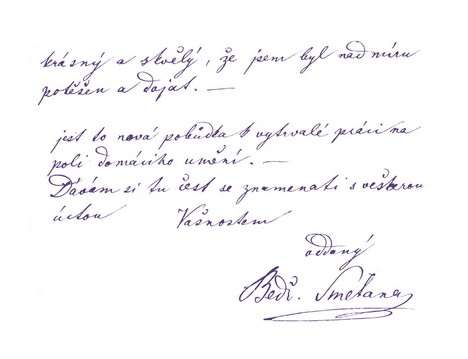 krásný a skvělý, že jsem byl nad míru
potěšen a dojat. —
jest to nová pobůdka k vytrvalé práci na
poli domácího umění. —
Dávám si tu čest se znamenati s veškerou
úctou Vašnostem
oddaný
Bedř. Smetana